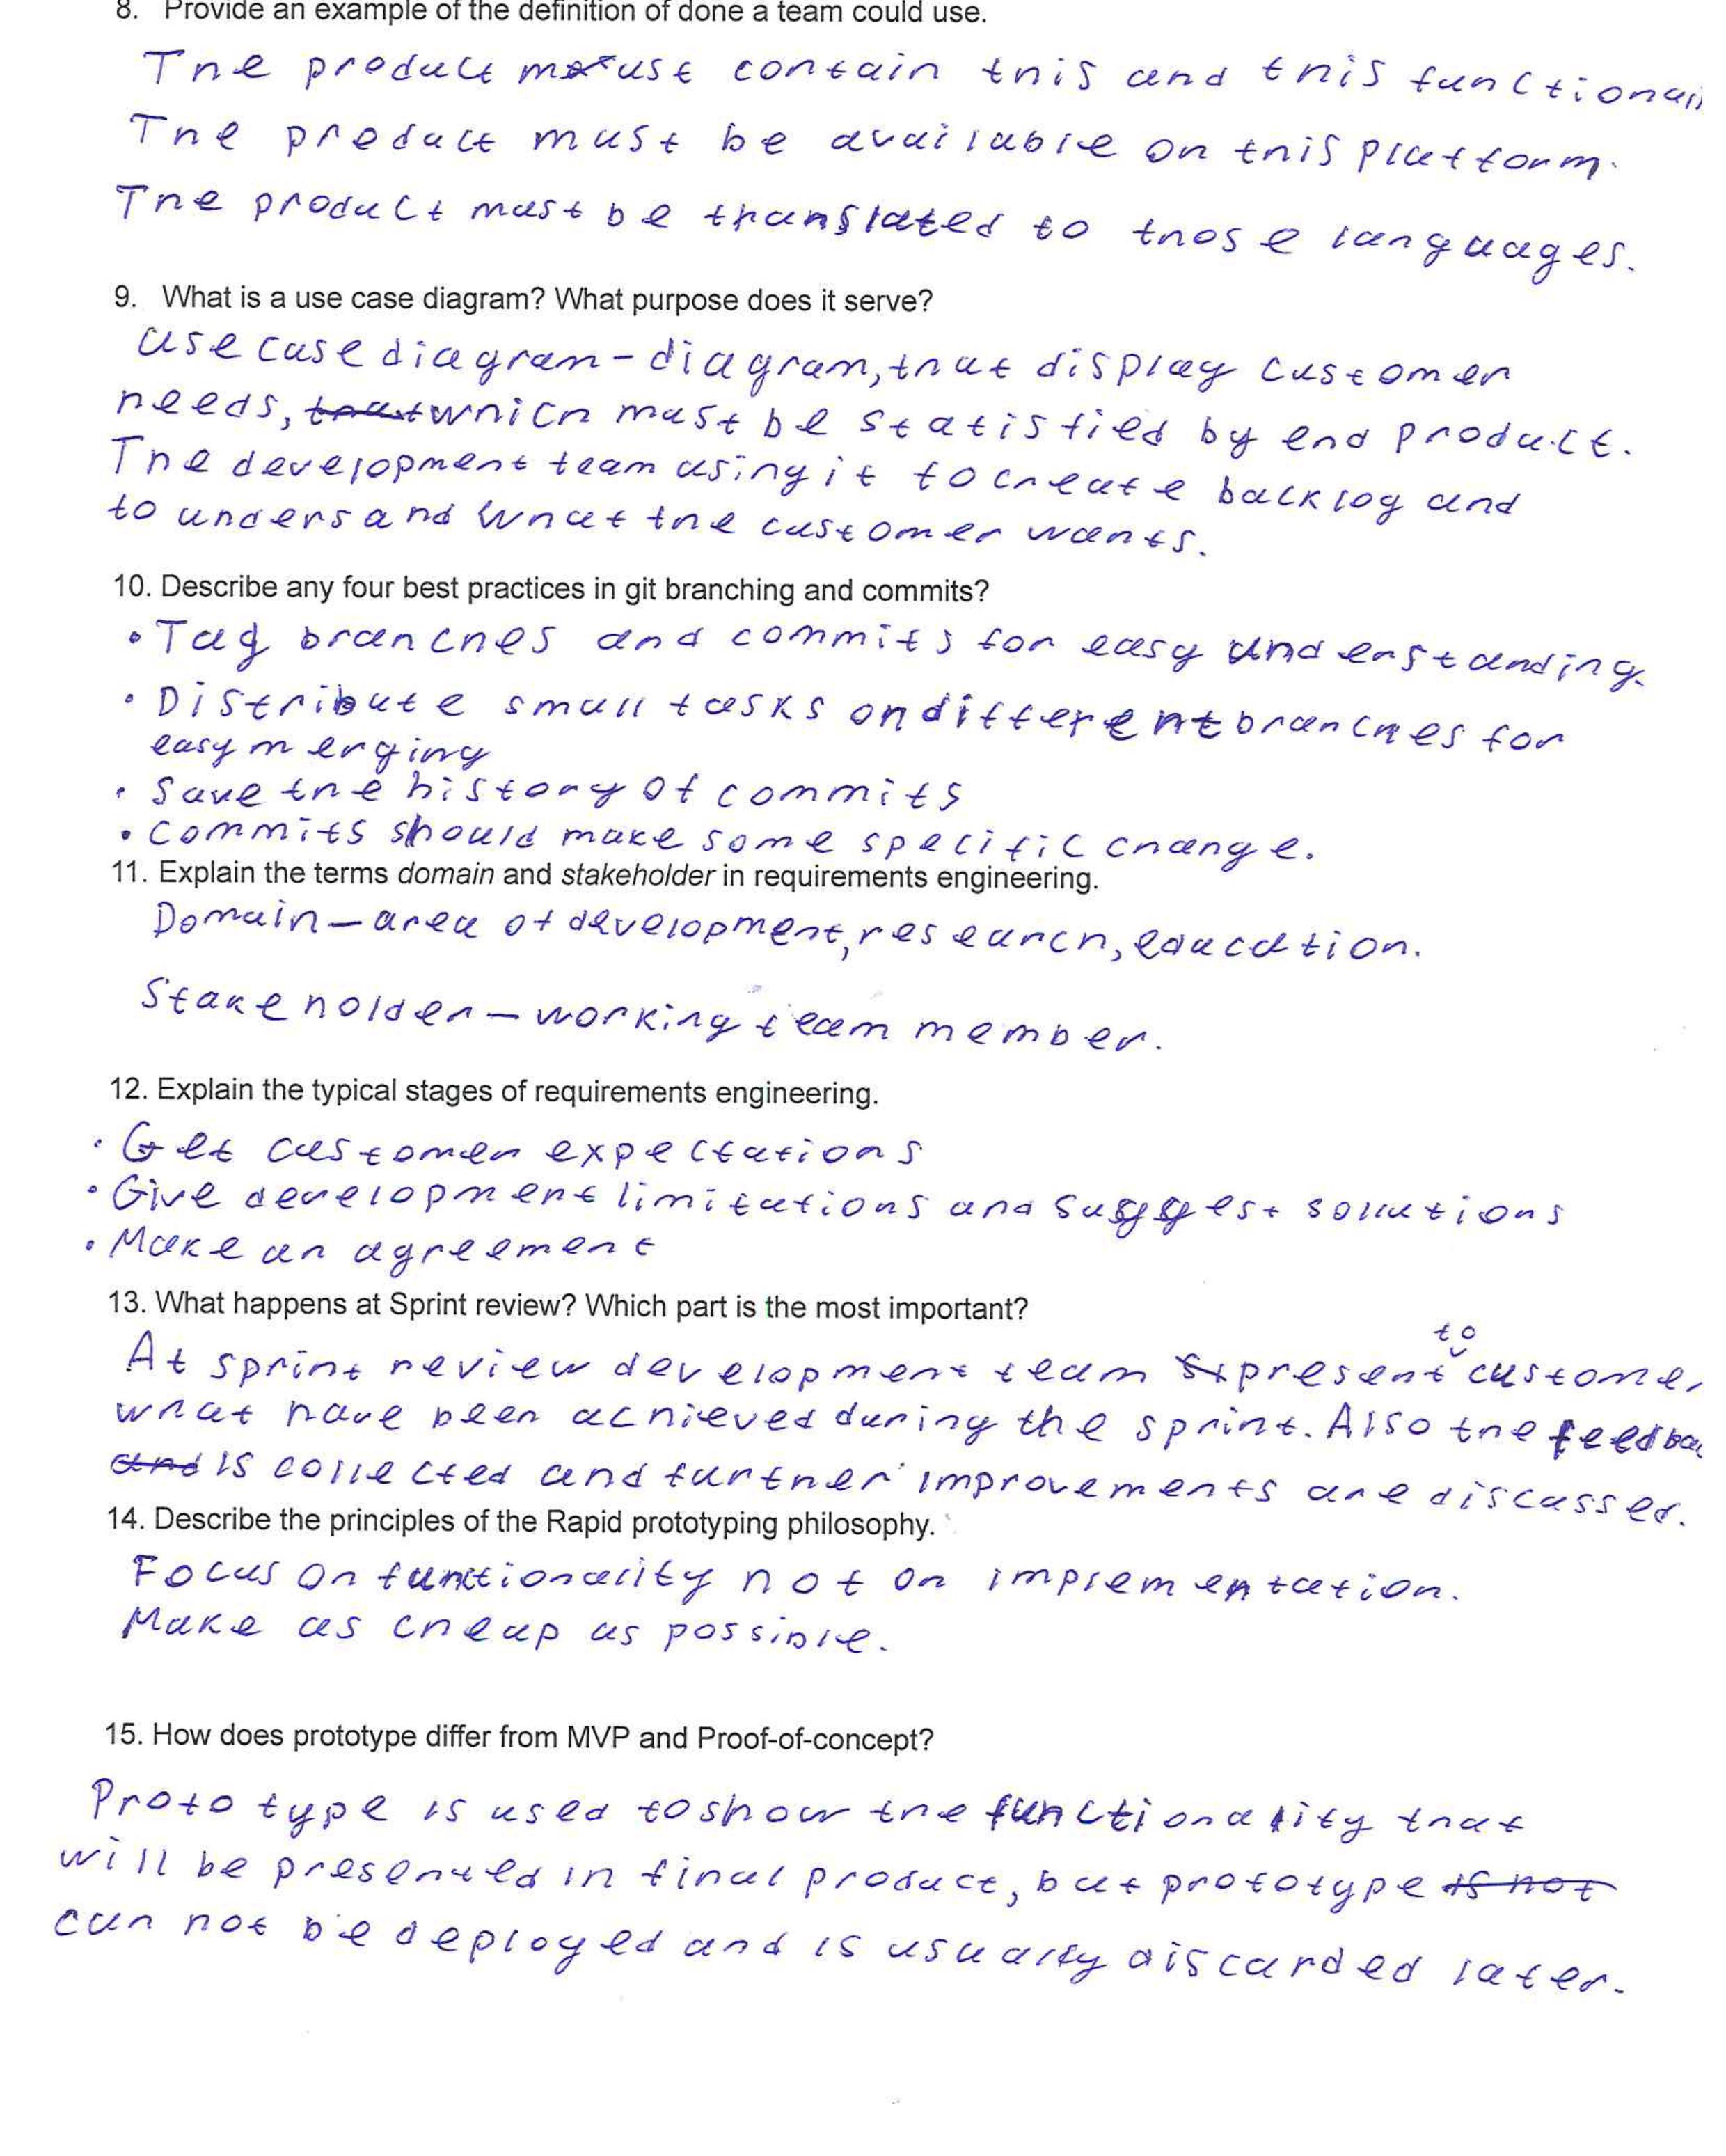 8. Provide an example of the definition of done a team could use.
The product must contain this and this functional
The product must be available on this platform.
The product must be translated to those languages.
9. What is a use case diagram? What purpose does it serve?
Use case diagram - diagram, that display customer
needs, that which must be statisfied by end product.
The development team using it to create backlog and
to undersand what the customer wants.
10. Describe any four best practices in git branching and commits?
• Tag branches and commits for easy understanding.
• Distribute small tasks on different branches for
easy merging
• Save the history of commits
• Commits should make some specific change.
11. Explain the terms domain and stakeholder in requirements engineering.
Domain - area of development, research, education.
Stakeholder - working team member.
12. Explain the typical stages of requirements engineering.
• Get customer expectations
• Give development limitations and suggest solutions
• Make an agreement
13. What happens at Sprint review? Which part is the most important?
At sprint review development team present to custome
what have been achieved during the sprint. Also the feedba
and is collected and further improvements are discussed.
14. Describe the principles of the Rapid prototyping philosophy.
Focus on functionality not on implementation.
Make as cheap as possible.
15. How does prototype differ from MVP and Proof-of-concept?
Prototype is used to show the functionality that
will be presented in final product, but prototype is not
can not be deployed and is usually discarded later.